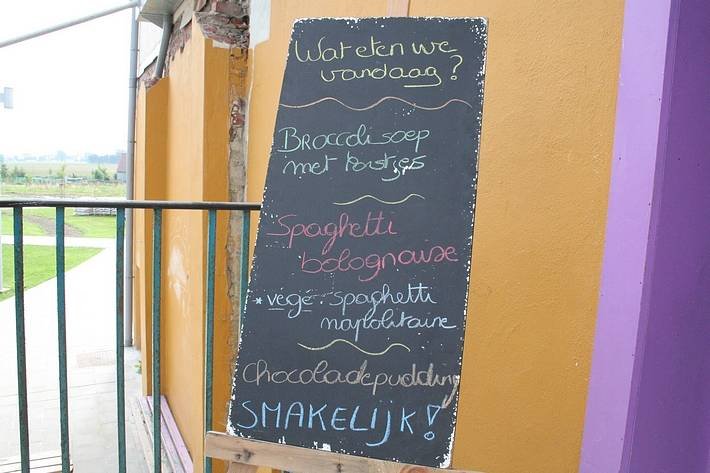 Wat eten we
vandaag?
Broccolisoep
met korstjes
Spaghetti
bolognaise
* végé: spaghetti
napolitaine
Chocoladepudding
SMAKELIJK!